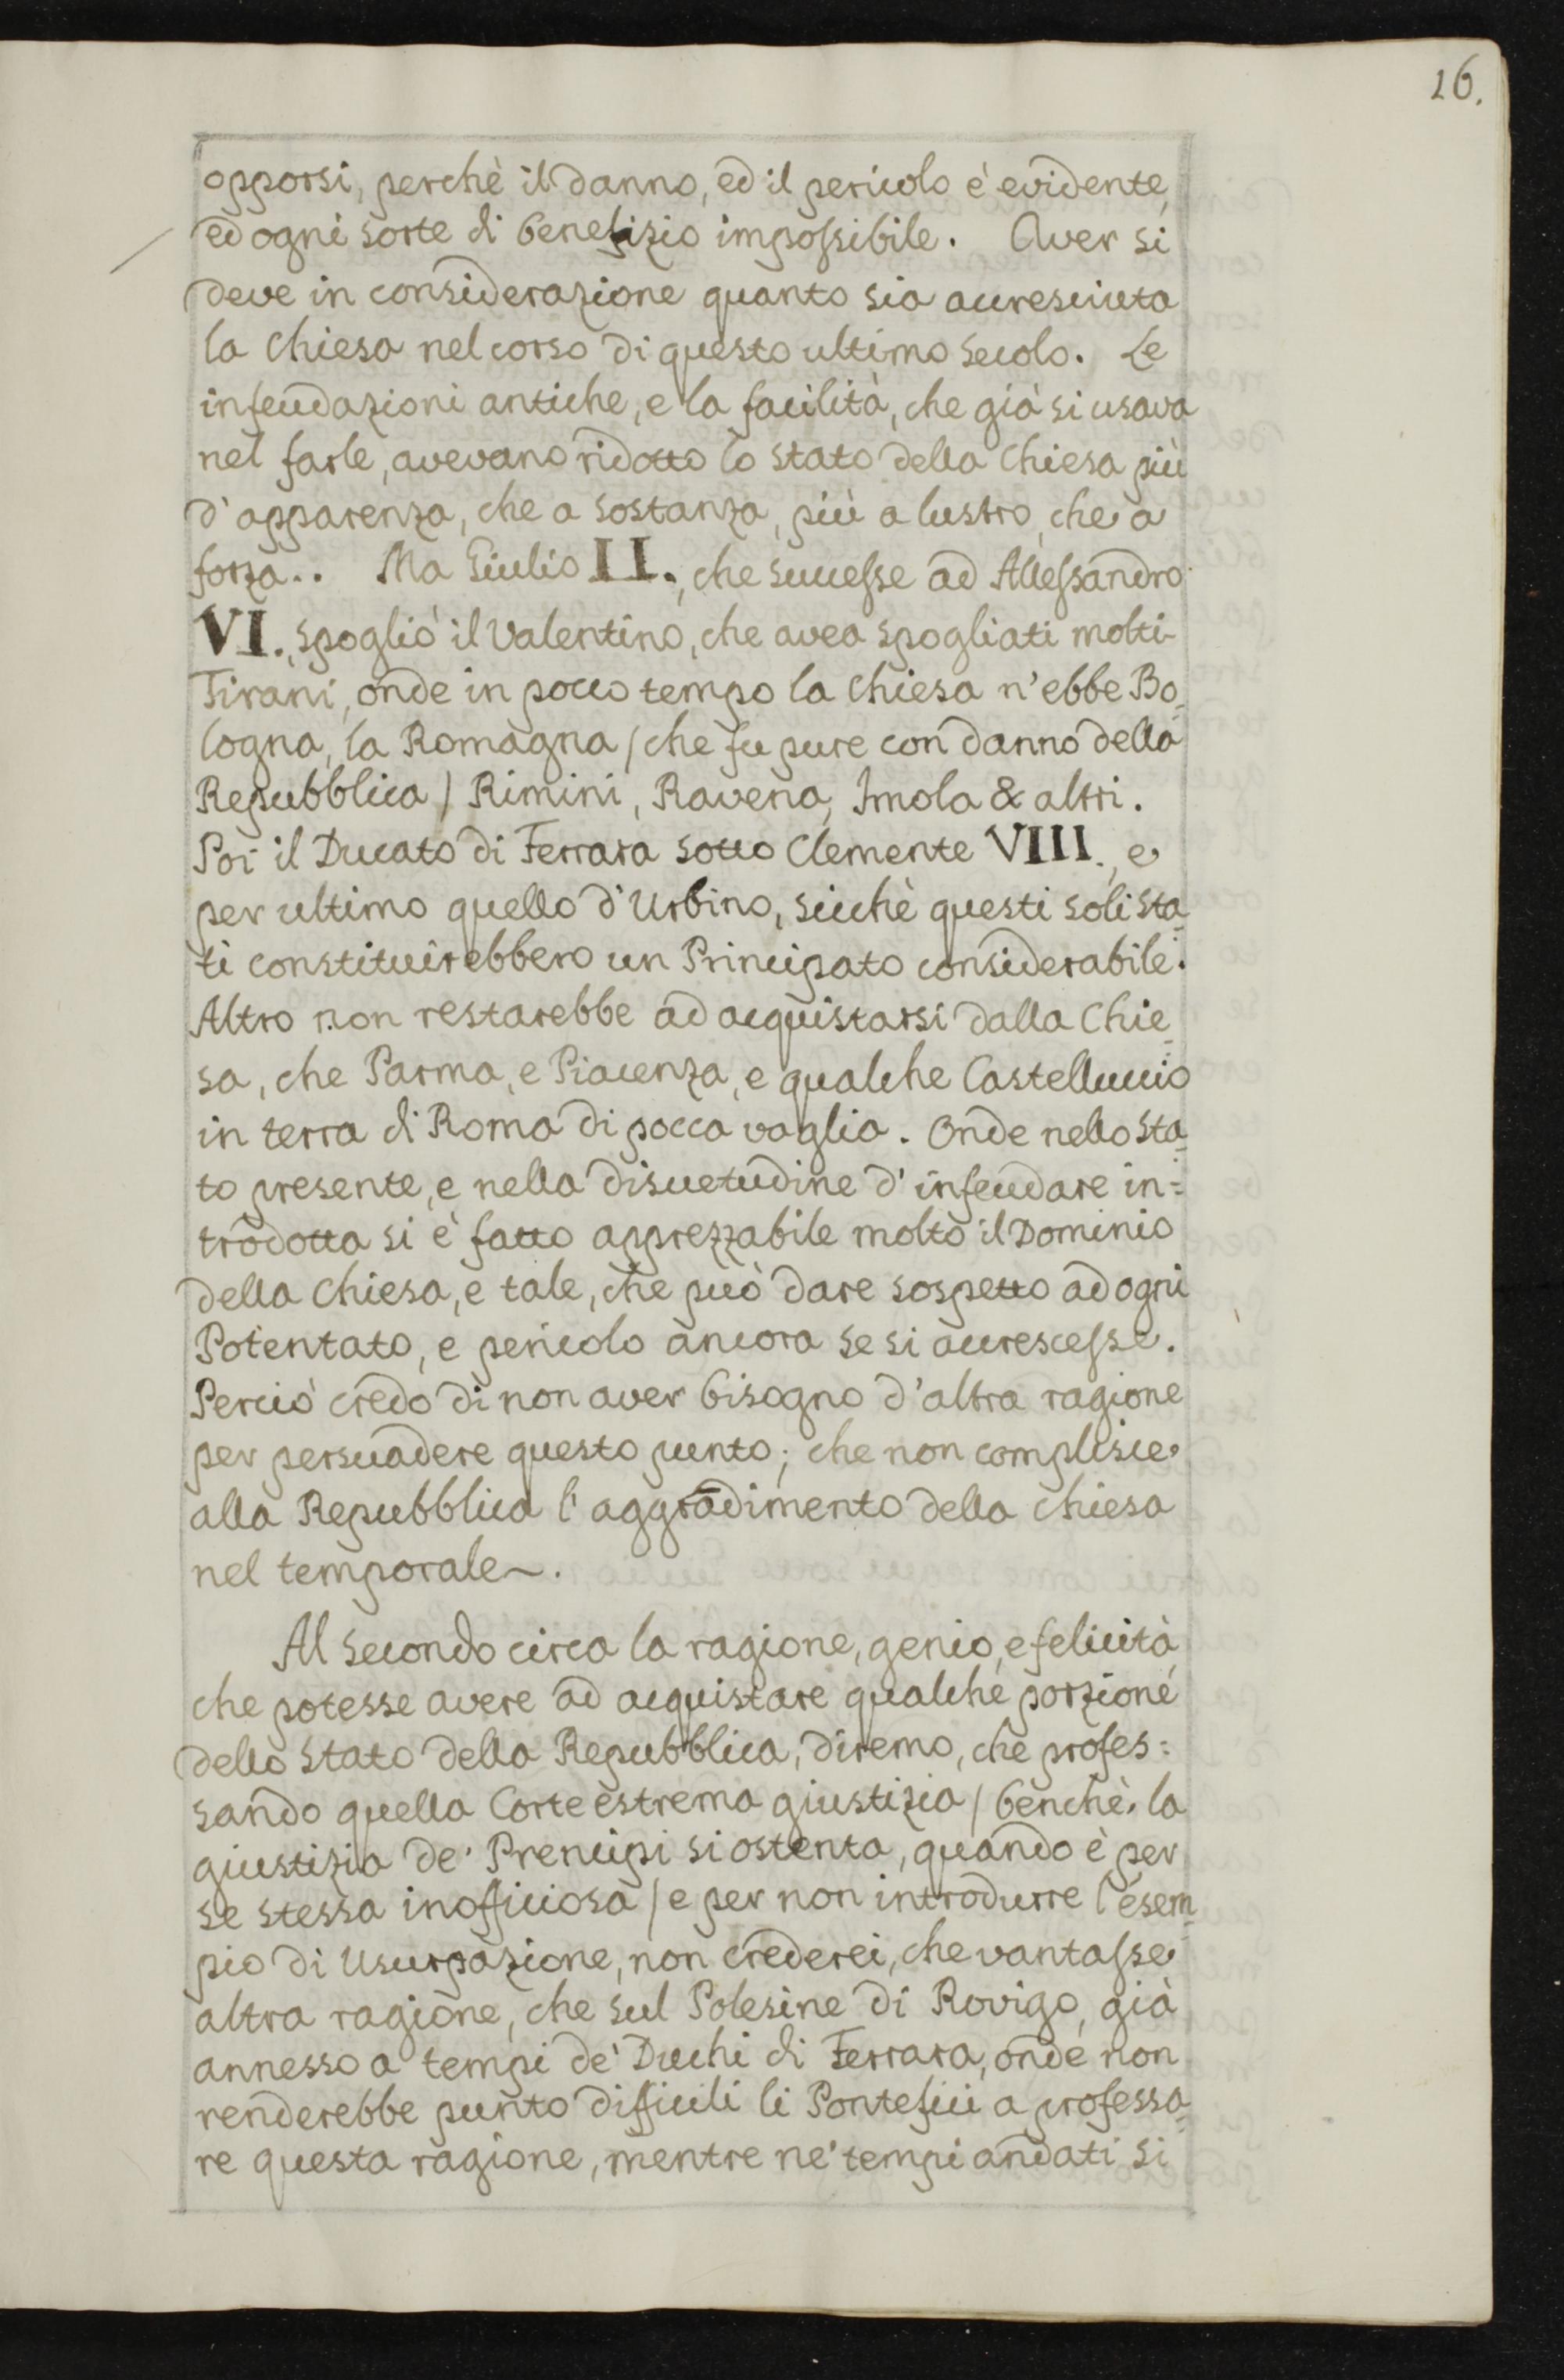 16.
opporsi, perchè il danno, ed il pericolo è evidente,
ed ogni sorte di benefizio impossibile. Aver si
deve in considerazione quanto sia accresciuta
la Chiesa nel corso di questo ultimo secolo. Le
infeudazioni antiche, e la facilità, che già si usava
nel farle, avevano ridotto lo stato della Chiesa più
d'apparenza, che a sostanza, più a lustro, che a
forza.. Ma Giulio II., che successe ad Allessandro
VI., spogliò il Valentino, che avea spogliati molti
Tirani, onde in pocco tempo la Chiesa n'ebbe Bo-
logna, la Romagna / che fu pure con danno della
Repubblica / Rimini, Ravena, Imola & altri.
Poi il Ducato di Ferrara sotto Clemente VIII., e
per ultimo quello d'Urbino, sicchè questi soli Sta-
ti constituirebbero un Principato considerabile.
Altro non restarebbe ad acquistarsi dalla Chie-
sa, che Parma, e Piacenza, e qualche Castelluccio
in terra di Roma di pocca vaglia. Onde nello Sta-
to presente, e nella disuetudine d'infeudare in=
trodotta si è fatto apprezzabile molto il Dominio
della Chiesa, e tale, che può dare sospetto ad ogni
Potentato, e pericolo ancora se si accrescesse.
Perciò credo di non aver bisogno d'altra ragione
per persuadere questo punto; che non complisce
alla Repubblica l'aggradimento della Chiesa
nel temporale.
Al Secondo circa la ragione, genio, e felicità
che potesse avere ad acquistare qualche porzione
dello Stato della Repubblica, diremo, che profes=
sando quella Corte estrema giustizia / benchè la
giustizia de' Prencipi si ostenta, quando è per
se stessa inofficiosa / e per non introdurre l'esem-
pio di Usurpazione, non crederei, che vantasse
altra ragione, che sul Polesine di Rovigo, già
annesso a tempi de' Duchi di Ferrara, onde non
renderebbe punto difficili li Pontefici a professa-
re questa ragione, mentre ne' tempi andati si